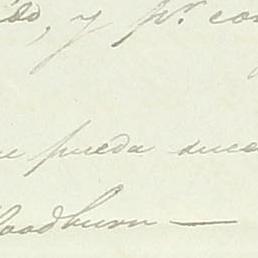 y pr. con
pueda suce
Woodburn —